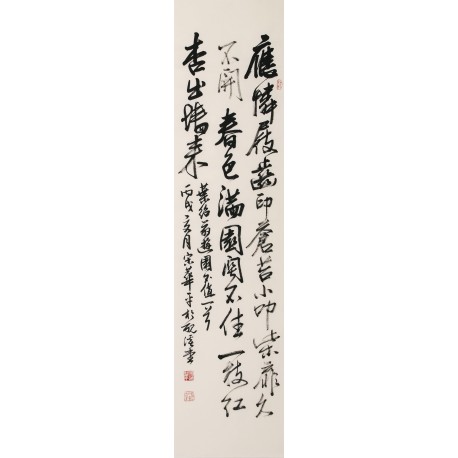 應憐屐齒印蒼苔小叩柴扉久
不開春色滿園關不住一枝紅
杏出墻來
葉紹翁遊園不值一首
丙戌月宗華於堂